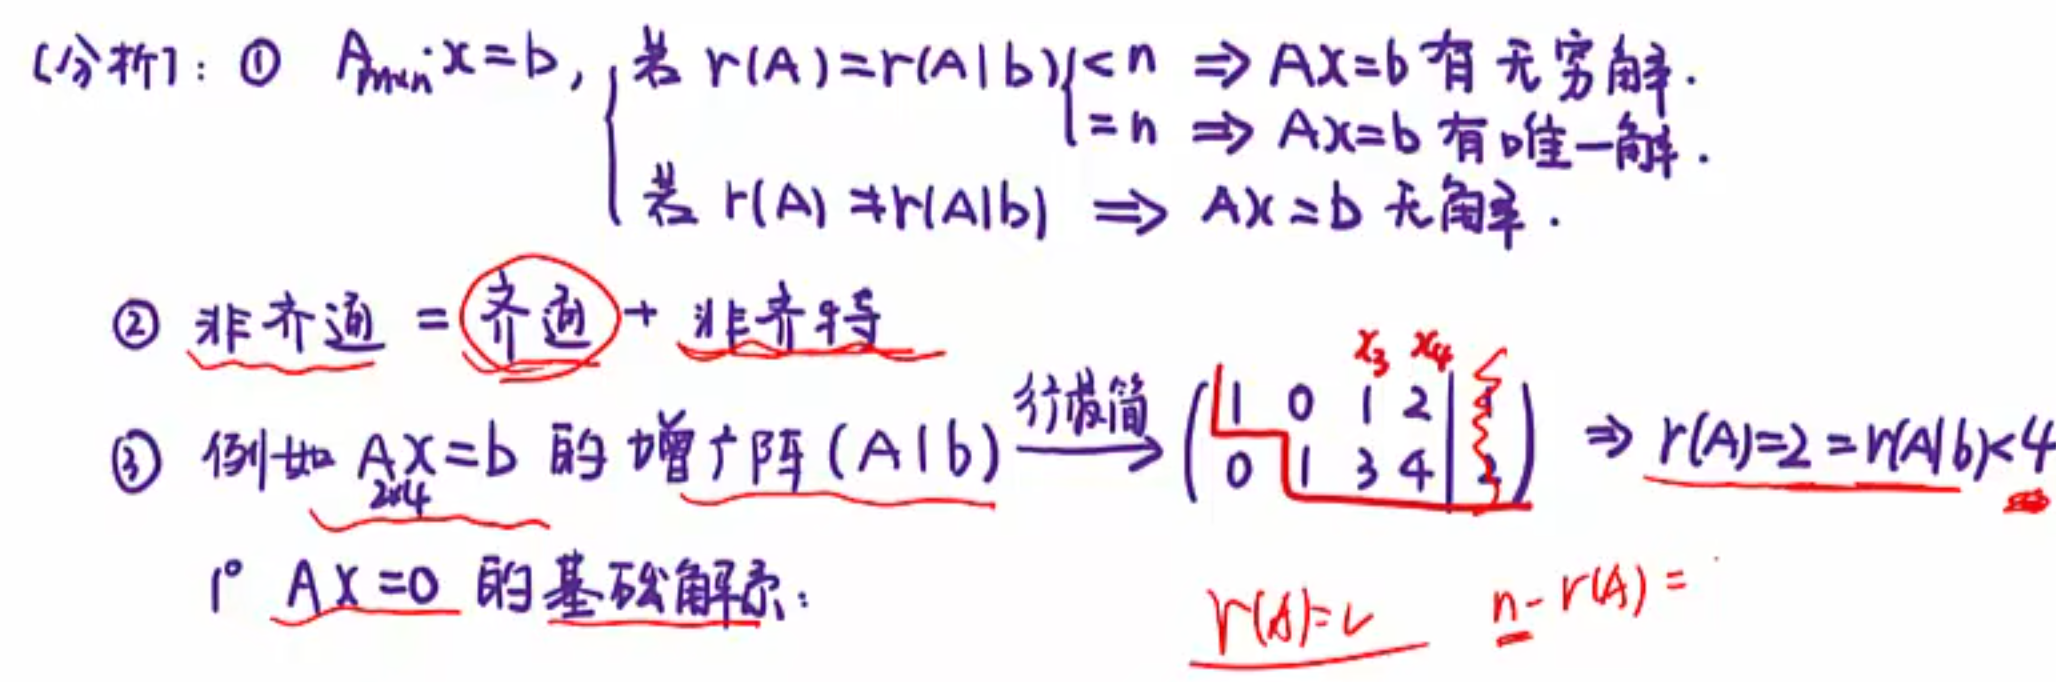 [分析]: ① Aₘₓₙ·x=b, { 若 r(A)=r(A|b) { <n ⇒ Ax=b 有无穷解.
=n ⇒ Ax=b 有唯一解.
若 r(A)≠r(A|b) ⇒ Ax=b 无解.
② 非齐通 = 齐通 + 非齐特
x₃ x₄
③ 例如 Ax=b 的增广阵(A|b) 行最简 → ( 1 0 1 2 | 1 ) ⇒ r(A)=2=r(A|b)<4
2×4 0 1 3 4 | 2
1° Ax=0 的基础解系:
r(A)=2 n-r(A)=